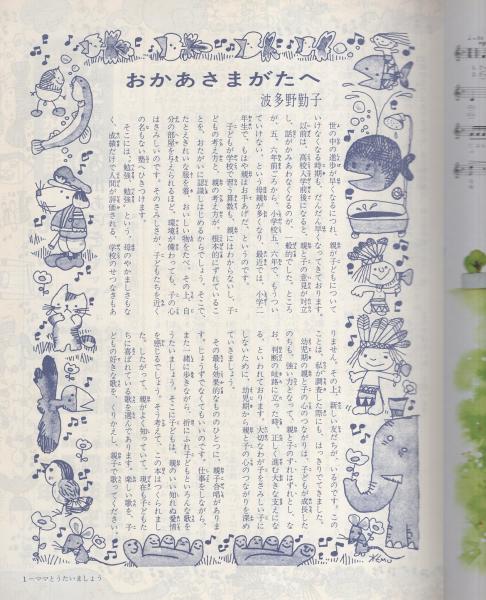 おかあさまがたへ
波多野勤子
世の中の進歩が早くなるにつれ、親が子どもについて
いけなくなる時期も、だんだん早くなってきております。
以前は、高校入学前後になると、親と子の意見が対立
し、話がかみあわなくなるのが、一般的でした。ところ
が、五、六年前ごろから、小学校五、六年で、もうつい
ていけない、という母親が多くなり、最近では、小学二
年生で、もはや親はお手あげだ、というのです。
子どもが学校で習う算数も、親にはわからないし、子
どもの考え方と、親の考え方が、根本的にずれているこ
とを、おたがいに認識しはじめるからでしょう。そこで、
たとえきれいな服を着、おいしい物をたべ、その上、自
分の部屋を与えられるほど、環境が備わっても、子の心
はさみしいのです。そのさみしさが、子どもたちを近く
の名もない塾へひきつけます。
そこには、勉強、勉強、という、母のやかましさもな
く、成績だけで人間が評価される、学校のせつなさもあ
りません。その上、新しい友だちが、いるのです。この
ことは、私が調査した際にも、はっきりでてきました。
幼児期の親と子の心のつながりは、子どもが成長した
のちも、強い力となって、親と子のずれはずれとし、な
お、判断の岐路に立った時、正しく進む大きな支えにな
る、といわれております。大切なわが子をさみしい子に
しないために、幼児期から親と子の心のつながりを深め
ていきましょう。
その最も効果的なもののひとつに、親子合唱がありま
す。じょうずでなくてもいいのです。仕事をしながら、
また一緒に歩きながら、折にふれ子どもといろんな歌を
うたいましょう。そこに子どもは、親のいい知れぬ愛情
を感じるでしょう。そう考えて、この本はつくられまし
た。したがって、親がよく知っていて、現在も子どもた
ちに喜ばれている歌を選んであります。楽しい歌を、子
どもの好きな歌を、くりかえし、親子で歌ってください
1―ママとうたいましょう